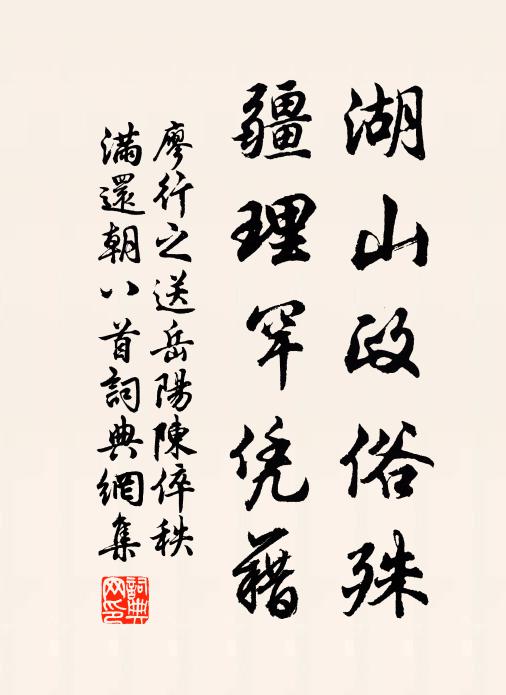 湖山政俗殊
疆理罕凭藉
廖行之送岳陽陳倅秩
滿還朝八首詞典網集
詞典网印